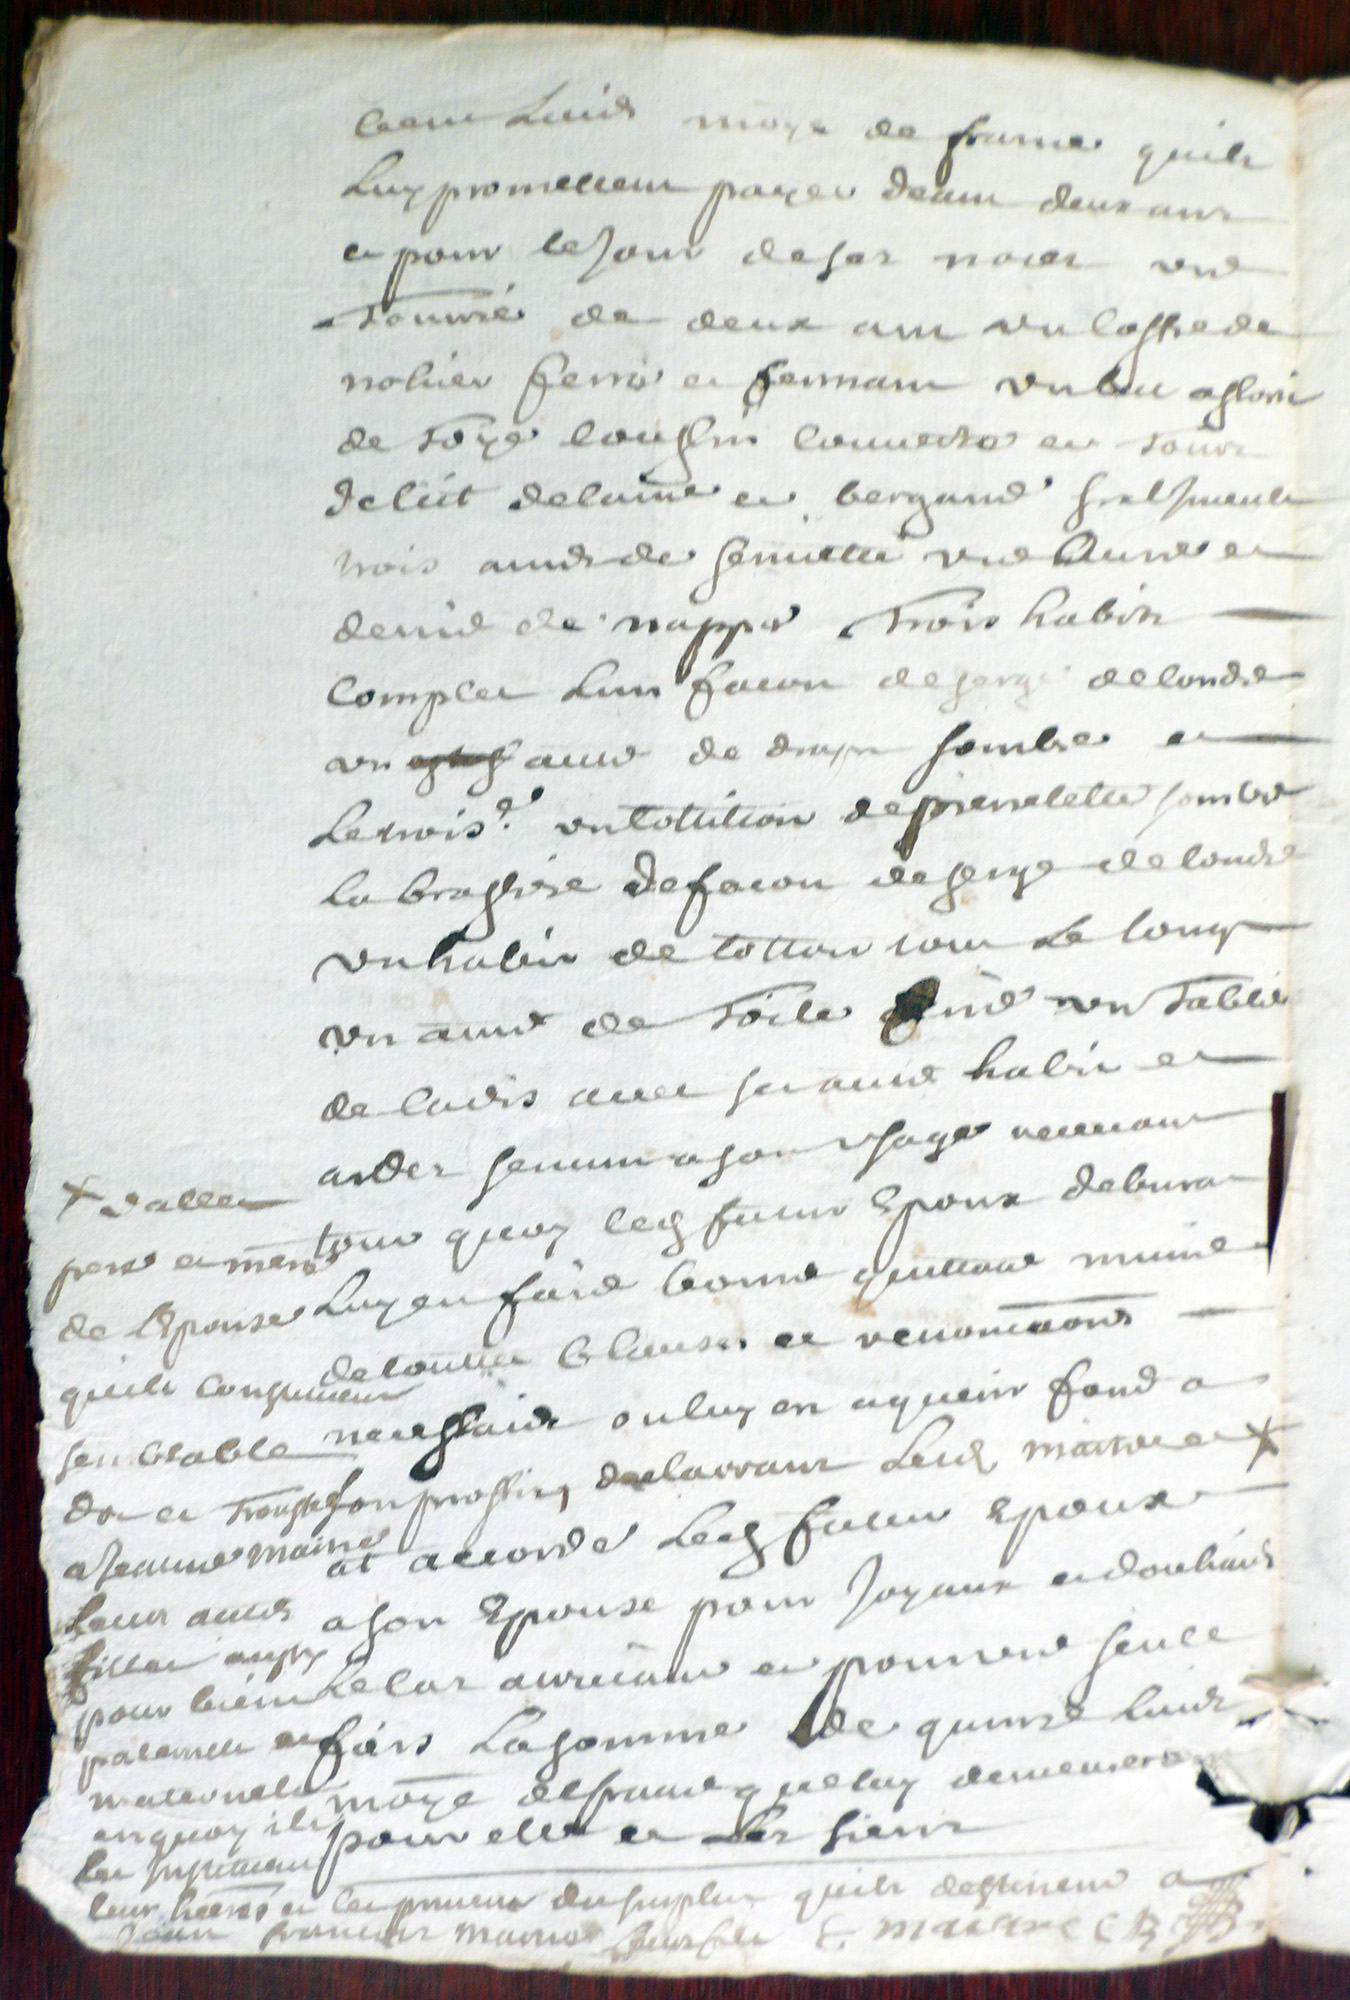 cent Livres moye de france quils
Luy promettent payer dcant deux ans
et pour le Jour de ses noces une
Tourrie de deux ans un Coffre de
nohier ferré et fermant un lict
de Toyle coussin couverte et Tour
de lict de laine et bergame
trois aunes de serviette une aune et
demie de nappe Trois habits
Complet Lun facon de serge de londre
un autre de drap sombre et
Le trois.e un Cottillon de sombre
La brassiere de facon de serge de londre
un habit de Cotton tout Le long
un autre de Toile un Tablie
de Cadis avec ses autres habit et
ardes servant a son usage recevant
tout quoy led futur Epoux debvra
Luy en faire bonne quittance munie
de toutes Clauses et renonciations
necessaires ou luy en aquerir fond a
son proffit, declarant Led maitre et X
at accordé Led futur Epoux
a son Epouse pour Joyaux et
Le cas arrivant et pour une seule
fois La somme de quinze Livres
moye de france que luy demeureront
pour elle et Les siens
X dalle
pere et mere
de lEpouse
quils constituent
semblable
dot et Trousseau
a Jeanne Maitre
Leur autre
fille aussy
pour bien
paternels et
maternels
en quoy ils
les Instituent
leur heres et les privent du surplus quils destinent a
Jean francois Maitre leur fils E. maitre C